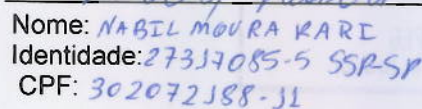 Nome: NABIL MOURA KARI
Identidade: 27317085-5 SSP-SP
CPF: 302072188-11